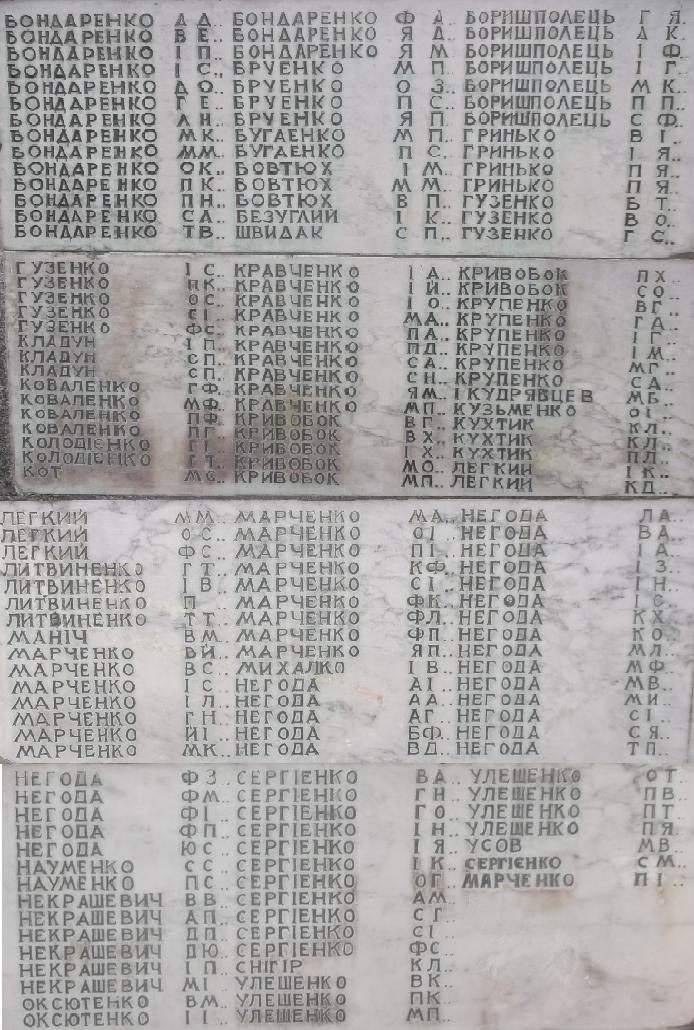 БОНДАРЕНКО Д Д.. БОНДАРЕНКО Ф А.. БОРИШПОЛЕЦЬ Г Я.
БОНДАРЕНКО В Е.. БОНДАРЕНКО Я Д.. БОРИШПОЛЕЦЬ Д К.
БОНДАРЕНКО І П.. БОНДАРЕНКО Я М БОРИШПОЛЕЦЬ І Ф.
БОНДАРЕНКО І С.. БРУЕНКО М П.. БОРИШПОЛЕЦЬ І Г.
БОНДАРЕНКО Д О.. БРУЕНКО О З.. БОРИШПОЛЕЦЬ М К..
БОНДАРЕНКО Г Е.. БРУЕНКО П С.. БОРИШПОЛЕЦЬ П П..
БОНДАРЕНКО Л Н.. БРУЕНКО Я П.. БОРИШПОЛЕЦЬ С Ф..
БОНДАРЕНКО М К.. БУГАЕНКО М П.. ГРИНЬКО В І..
БОНДАРЕНКО М М.. БУГАЕНКО П С.. ГРИНЬКО І Я..
БОНДАРЕНКО О К.. БОВТЮХ І М.. ГРИНЬКО П Я..
БОНДАРЕНКО П К.. БОВТЮХ М М.. ГРИНЬКО П Я..
БОНДАРЕНКО П Н.. БОВТЮХ В П.. ГУЗЕНКО Б Т..
БОНДАРЕНКО С А.. БЕЗУГЛИЙ І К.. ГУЗЕНКО В О..
БОНДАРЕНКО Т В.. ШВИДАК С П.. ГУЗЕНКО Г С..
ГУЗЕНКО І С.. КРАВЧЕНКО І А.. КРИВОБОК П Х..
ГУЗЕНКО П К.. КРАВЧЕНКО І Й.. КРИВОБОК С О..
ГУЗЕНКО О С.. КРАВЧЕНКО І О.. КРУПЕНКО В Г..
ГУЗЕНКО С І.. КРАВЧЕНКО М А.. КРУПЕНКО Г А..
ГУЗЕНКО Ф С.. КРАВЧЕНКО П А.. КРУПЕНКО І Г..
КЛАДУН І П.. КРАВЧЕНКО П Д.. КРУПЕНКО І М..
КЛАДУН С П.. КРАВЧЕНКО С А.. КРУПЕНКО М Г..
КЛАДУН С П.. КРАВЧЕНКО С Н.. КРУПЕНКО С А..
КОВАЛЕНКО Г Ф.. КРАВЧЕНКО Я М.. І КУДРЯВЦЕВ М Б..
КОВАЛЕНКО М Ф.. КРАВЧЕНКО М П.. КУЗЬМЕНКО О І..
КОВАЛЕНКО П Ф.. КРИВОБОК В Г.. КУХТИК К Л..
КОВАЛЕНКО П Г.. КРИВОБОК В Х.. КУХТИК К Л..
КОЛОДІЄНКО Г І.. КРИВОБОК І Х.. КУХТИК П Л..
КОЛОДІЄНКО Г Т.. КРИВОБОК М О.. ЛЕГКИЙ І К..
КОТ М С.. КРИВОБОК М П.. ЛЕГКИЙ К Д..
ЛЕГКИЙ М М.. МАРЧЕНКО М А.. НЕГОДА Л А..
ЛЕГКИЙ О С.. МАРЧЕНКО О І.. НЕГОДА В А..
ЛЕГКИЙ Ф С.. МАРЧЕНКО П І.. НЕГОДА І А..
ЛИТВИНЕНКО Г Т.. МАРЧЕНКО К Ф.. НЕГОДА І З..
ЛИТВИНЕНКО І В.. МАРЧЕНКО С І.. НЕГОДА І Н..
ЛИТВИНЕНКО П МАРЧЕНКО Ф К.. НЕГОДА І С..
ЛИТВИНЕНКО Т Т.. МАРЧЕНКО Ф Л.. НЕГОДА К Х..
МАНІЧ В М.. МАРЧЕНКО Ф П.. НЕГОДА К О..
МАРЧЕНКО В Й.. МАРЧЕНКО Я П.. НЕГОДА М Л..
МАРЧЕНКО В С.. МИХАЛКО І В.. НЕГОДА М Ф..
МАРЧЕНКО І С.. НЕГОДА А І.. НЕГОДА М В..
МАРЧЕНКО І Л.. НЕГОДА А А.. НЕГОДА М И..
МАРЧЕНКО Г Н.. НЕГОДА А Г.. НЕГОДА С І..
МАРЧЕНКО Й І.. НЕГОДА Б Ф.. НЕГОДА С Я..
МАРЧЕНКО М К.. НЕГОДА В Д.. НЕГОДА Т П..
НЕГОДА Ф З.. СЕРГІЕНКО В А.. УЛЕШЕНКО О Т..
НЕГОДА Ф М.. СЕРГІЕНКО Г Н.. УЛЕШЕНКО П В..
НЕГОДА Ф І.. СЕРГІЕНКО Г О.. УЛЕШЕНКО П Т..
НЕГОДА Ф П.. СЕРГІЕНКО І Н.. УЛЕШЕНКО П Я..
НЕГОДА Ю С.. СЕРГІЕНКО І Я.. УСОВ М В..
НАУМЕНКО С С.. СЕРГІЕНКО І К.. СЕРГІЄНКО С М..
НАУМЕНКО П С.. СЕРГІЕНКО О Г.. МАРЧЕНКО П І..
НЕКРАШЕВИЧ В В.. СЕРГІЕНКО А М..
НЕКРАШЕВИЧ А П.. СЕРГІЕНКО С Г..
НЕКРАШЕВИЧ Д П.. СЕРГІЕНКО С І..
НЕКРАШЕВИЧ Д Ю.. СЕРГІЕНКО Ф С..
НЕКРАШЕВИЧ І П.. СНІГІР К Л..
НЕКРАШЕВИЧ М І.. УЛЕШЕНКО В К..
ОКСЮТЕНКО В М.. УЛЕШЕНКО П К..
ОКСЮТЕНКО І І.. УЛЕШЕНКО М П..